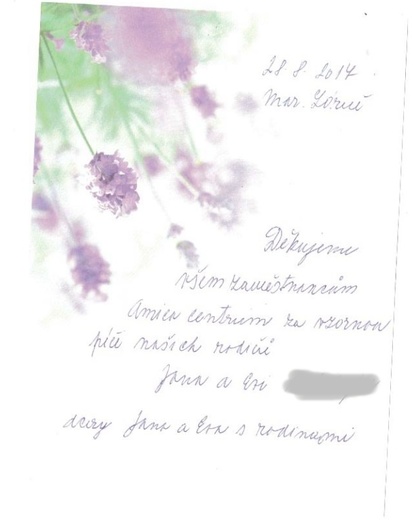 28. 8. 2014
Mar. Lázně
Děkujeme
všem zaměstnancům
Amica centrum za vzornou
péči našich rodičů
Jana a Evi
dcery Jana a Eva s rodinami